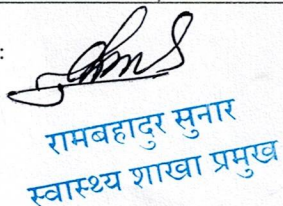 :
रामबहादुर सुनार
स्वास्थ्य शाखा प्रमुख